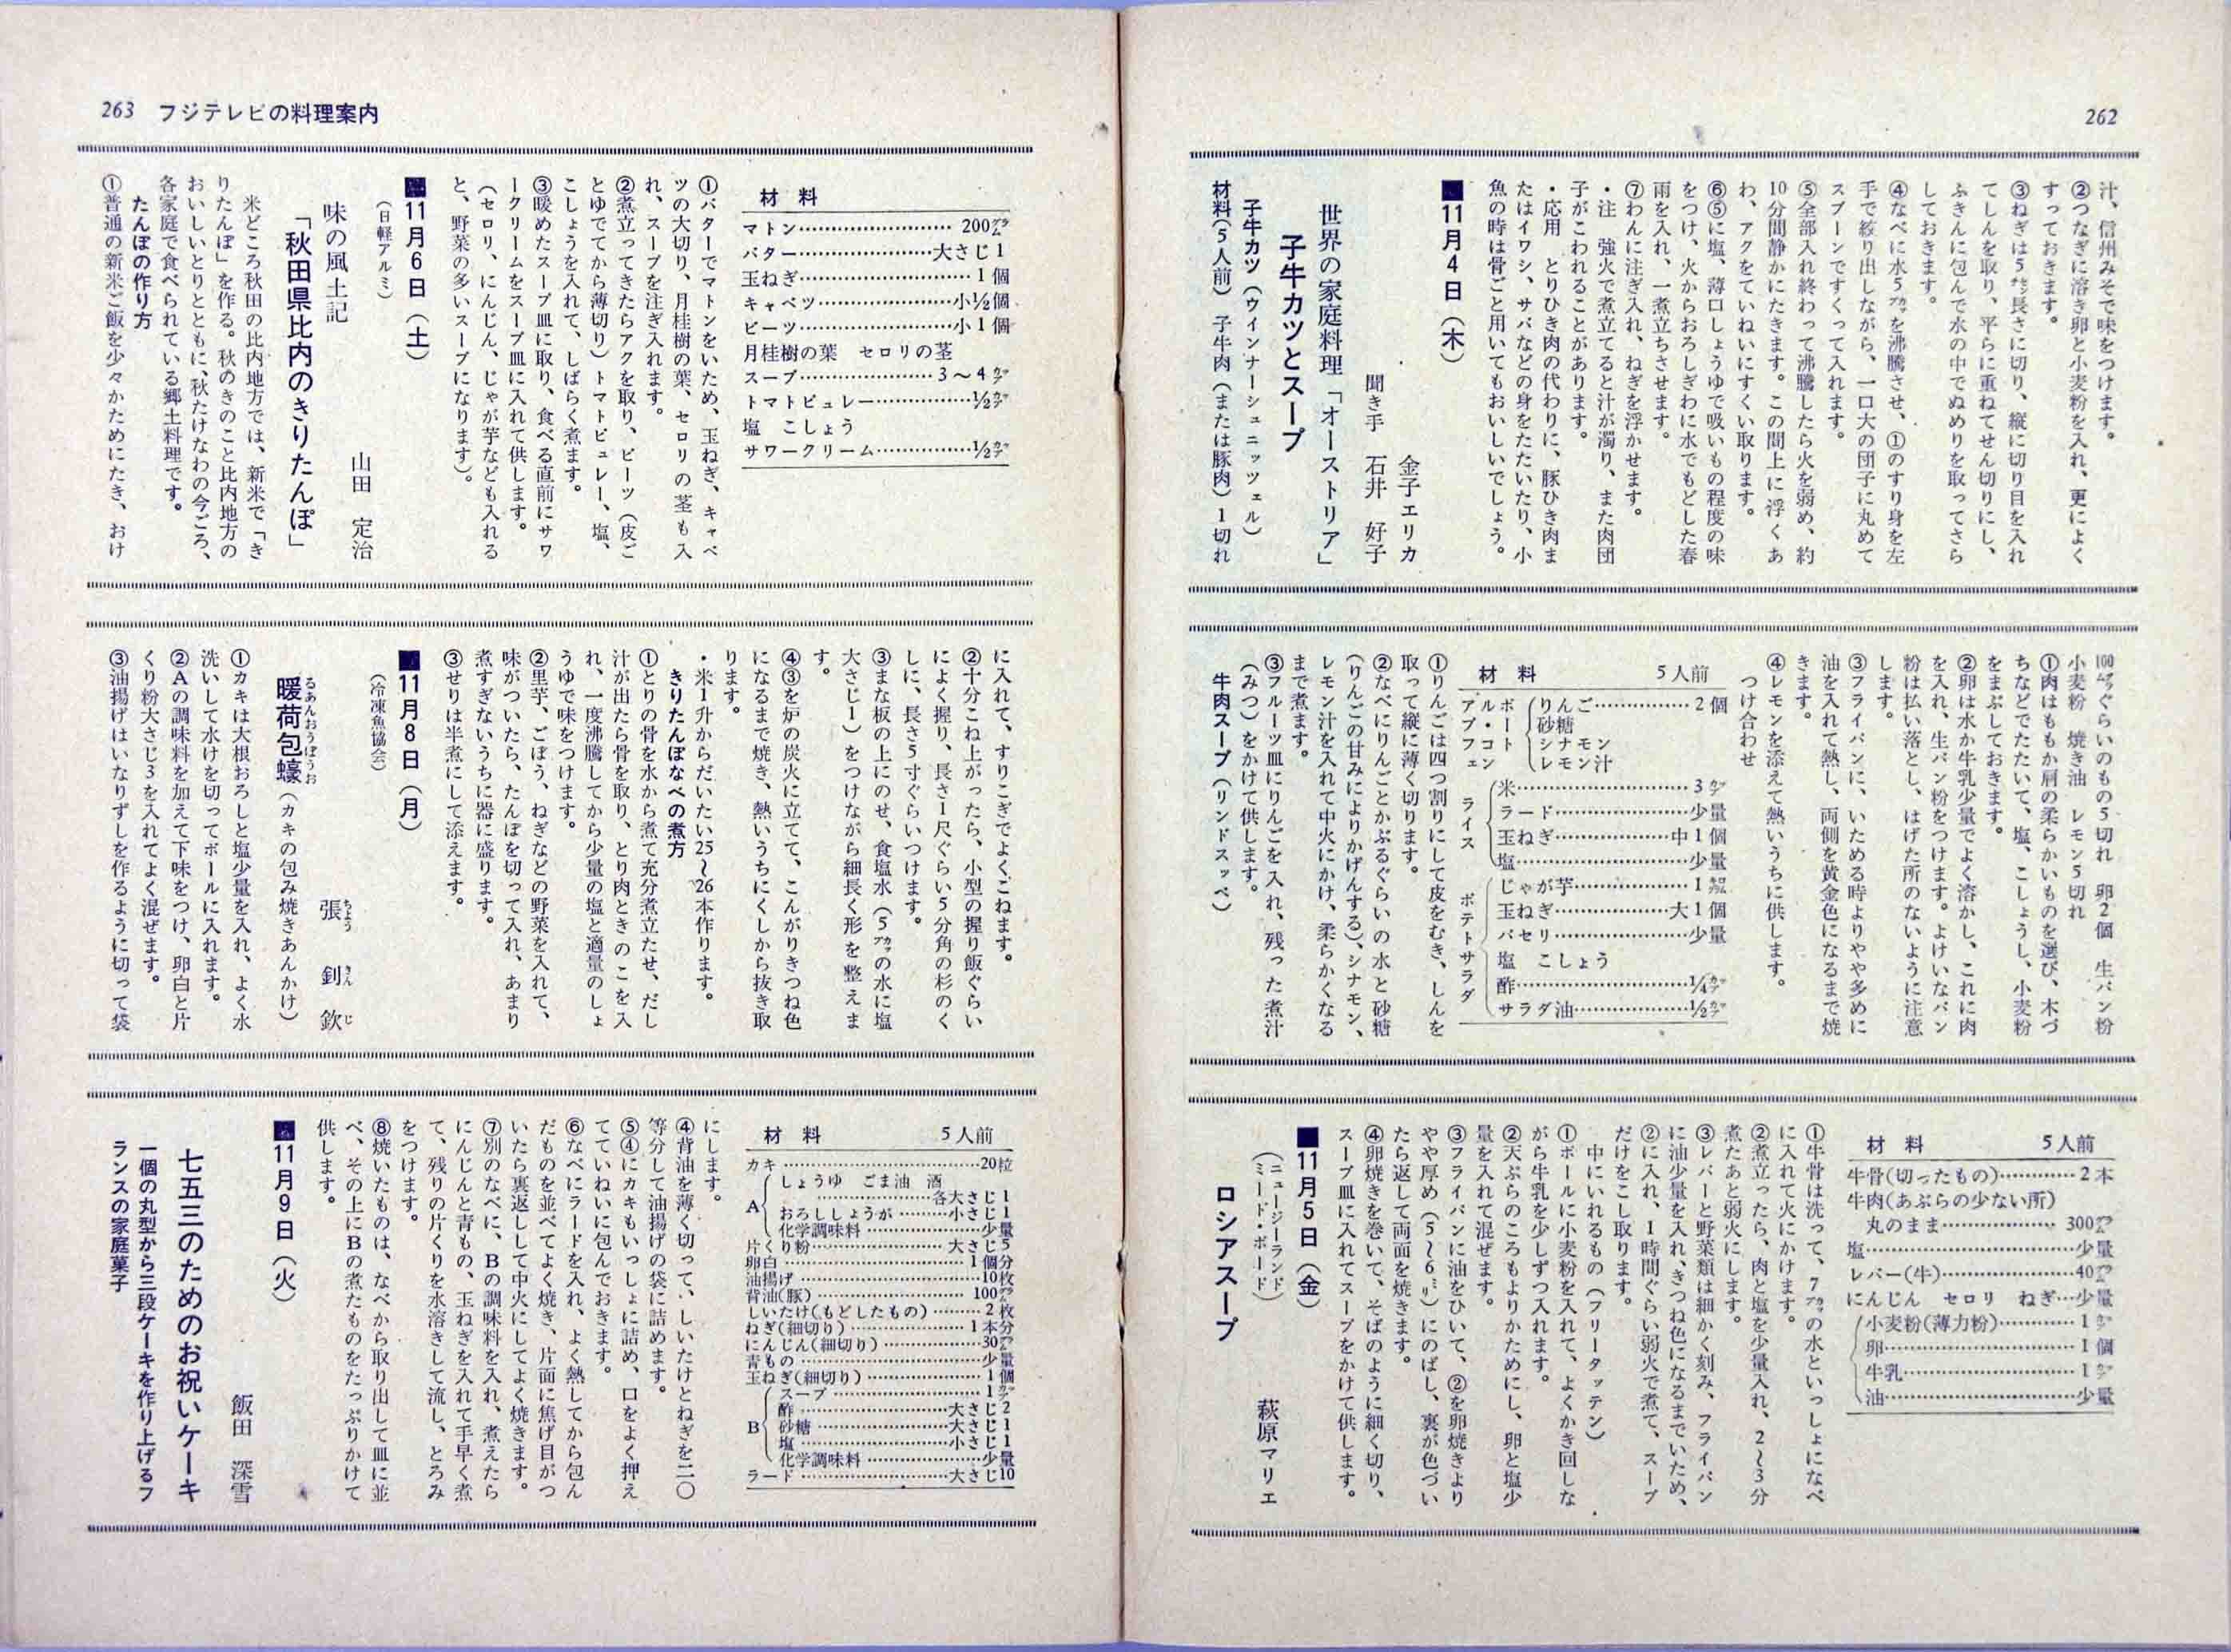 262
汁、信州みそで味をつけます。
②つなぎに溶き卵と小麦粉を入れ、更によく
すっておきます。
③ねぎは5㌢長さに切り、縦に切り目を入れ
てしんを取り、平らに重ねてせん切りにし、
ふきんに包んで水の中でぬめりを取ってさら
しておきます。
④なべに水5㌍を沸騰させ、①のすり身を左
手で絞り出しながら、一口大の団子に丸めて
スプーンですくって入れます。
⑤全部入れ終わって沸騰したら火を弱め、約
10分間静かにたきます。この間上に浮くあ
わ、アクをていねいにすくい取ります。
⑥⑤に塩、薄口しょうゆで吸いもの程度の味
をつけ、火からおろしぎわに水でもどした春
雨を入れ、一煮立ちさせます。
⑦わんに注ぎ入れ、ねぎを浮かせます。
・注　強火で煮立てると汁が濁り、また肉団
子がこわれることがあります。
・応用　とりひき肉の代わりに、豚ひき肉ま
たはイワシ、サバなどの身をたたいたり、小
魚の時は骨ごと用いてもおいしいでしょう。
■11月4日（木）
金子エリカ
聞き手　石井　好子
世界の家庭料理「オーストリア」
子牛カツとスープ
子牛カツ（ウインナーシュニッツェル）
材料（5人前）子牛肉（または豚肉）1切れ
100㌘ぐらいのもの5切れ　卵2個　生パン粉
小麦粉　焼き油　レモン5切れ
①肉はももか肩の柔らかいものを選び、木づ
ちなどでたたいて、塩、こしょうし、小麦粉
をまぶしておきます。
②卵は水か牛乳少量でよく溶かし、これに肉
を入れ、生パン粉をつけます。よけいなパン
粉は払い落とし、はげた所のないように注意
します。
③フライパンに、いためる時よりやや多めに
油を入れて熱し、両側を黄金色になるまで焼
きます。
④レモンを添えて熱いうちに供します。
つけ合わせ
材料　5人前
アプフェル・コンポート
りんご……2個
砂糖
シナモン
レモン汁
ライス
米……3㌍
ラード……少量
玉ねぎ……中1個
塩……少量
ポテトサラダ
じゃが芋……1㌔
玉ねぎ……大1個
パセリ……少量
塩　こしょう
酢……¼㌍
サラダ油……½㌍
①りんごは四つ割りにして皮をむき、しんを
取って縦に薄く切ります。
②なべにりんごとかぶるぐらいの水と砂糖
（りんごの甘みによりかげんする）、シナモン、
レモン汁を入れて中火にかけ、柔らかくなる
まで煮ます。
③フルーツ皿にりんごを入れ、残った煮汁
（みつ）をかけて供します。
牛肉スープ（リンドスッペ）
材料　5人前
牛骨(切ったもの)……2本
牛肉(あぶらの少ない所)
丸のまま……300㌘
塩……少量
レバー(牛)……40㌘
にんじん　セロリ　ねぎ…少量
小麦粉(薄力粉)……1㌍
卵……1個
牛乳……1㌍
油……少量
①牛骨は洗って、7㌍の水といっしょになべ
に入れて火にかけます。
②煮立ったら、肉と塩を少量入れ、2〜3分
煮たあと弱火にします。
③レバーと野菜類は細かく刻み、フライパン
に油少量を入れ、きつね色になるまでいため、
②に入れ、1時間ぐらい弱火で煮て、スープ
だけをこし取ります。
中にいれるもの（フリータッテン）
①ボールに小麦粉を入れて、よくかき回しな
がら牛乳を少しずつ入れます。
②天ぷらのころもよりかためにし、卵と塩少
量を入れて混ぜます。
③フライパンに油をひいて、②を卵焼きより
やや厚め（5〜6㍉）にのばし、裏が色づい
たら返して両面を焼きます。
④卵焼きを巻いて、そばのように細く切り、
スープ皿に入れてスープをかけて供します。
■11月5日（金）
（ニュージーランド
ミード・ボード）
萩原マリエ
ロシアスープ
263　フジテレビの料理案内
材料
マトン……200㌘
バター……大さじ1
玉ねぎ……1個
キャベツ……小½個
ビーツ……小1個
月桂樹の葉　セロリの茎
スープ……3〜4㌍
トマトピュレー……½㌍
塩　こしょう
サワークリーム……½㌍
①バターでマトンをいため、玉ねぎ、キャベ
ツの大切り、月桂樹の葉、セロリの茎も入
れ、スープを注ぎ入れます。
②煮立ってきたらアクを取り、ビーツ（皮ご
とゆでてから薄切り）トマトピュレー、塩、
こしょうを入れて、しばらく煮ます。
③暖めたスープ皿に取り、食べる直前にサワ
ークリームをスープ皿に入れて供します。
（セロリ、にんじん、じゃが芋なども入れる
と、野菜の多いスープになります）。
■11月6日（土）
（日軽アルミ）
山田　定治
味の風土記
「秋田県比内のきりたんぽ」
米どころ秋田の比内地方では、新米で「き
りたんぽ」を作る。秋のきのこと比内地方の
おいしいとりとともに、秋たけなわの今ごろ、
各家庭で食べられている郷土料理です。
たんぽの作り方
①普通の新米ご飯を少々かためにたき、おけ
に入れて、すりこぎでよくこねます。
②十分こね上がったら、小型の握り飯ぐらい
によく握り、長さ1尺ぐらい5分角の杉のく
しに、長さ5寸ぐらいつけます。
③まな板の上にのせ、食塩水（5㌍の水に塩
大さじ1）をつけながら細長く形を整えま
す。
④③を炉の炭火に立てて、こんがりきつね色
になるまで焼き、熱いうちにくしから抜き取
ります。
・米1升からだいたい25〜26本作ります。
きりたんぽなべの煮方
①とりの骨を水から煮て充分煮立たせ、だし
汁が出たら骨を取り、とり肉ときのこを入
れ、一度沸騰してから少量の塩と適量のしょ
うゆで味をつけます。
②里芋、ごぼう、ねぎなどの野菜を入れて、
味がついたら、たんぽを切って入れ、あまり
煮すぎないうちに器に盛ります。
③せりは半煮にして添えます。
■11月8日（月）
（冷凍魚協会）
張　釗　欽
ちょう　きん　じ
暖荷包蠔（カキの包み焼きあんかけ）
るあんおうぼうお
①カキは大根おろしと塩少量を入れ、よく水
洗いして水けを切ってボールに入れます。
②Aの調味料を加えて下味をつけ、卵白と片
くり粉大さじ3を入れてよく混ぜます。
③油揚げはいなりずしを作るように切って袋
にします。
材料　5人前
カキ……20粒
A
しょうゆ　ごま油　酒
……各大さじ1
おろししょうが……小さじ1
化学調味料……少量
片くり粉……大さじ5
卵白……1個分
油揚げ……10枚
背油(豚)……100㌘
しいたけ(もどしたもの)……2枚
ねぎ(細切り)……1本分
にんじん(細切り)……30㌘
青もの……少量
玉ねぎ(細切り)……1個
B
スープ……1㌍
酢……大さじ2
砂糖……大さじ1
塩……小さじ1
化学調味料……少量
ラード……大さじ10
④背油を薄く切って、しいたけとねぎを二〇
等分して油揚げの袋に詰めます。
⑤④にカキもいっしょに詰め、口をよく押え
てていねいに包んでおきます。
⑥なべにラードを入れ、よく熱してから包ん
だものを並べてよく焼き、片面に焦げ目がつ
いたら裏返しして中火にしてよく焼きます。
⑦別のなべに、Bの調味料を入れ、煮えたら
にんじんと青もの、玉ねぎを入れて手早く煮
て、残りの片くりを水溶きして流し、とろみ
をつけます。
⑧焼いたものは、なべから取り出して皿に並
べ、その上にBの煮たものをたっぷりかけて
供します。
■11月9日（火）
飯田　深雪
七五三のためのお祝いケーキ
一個の丸型から三段ケーキを作り上げるフ
ランスの家庭菓子